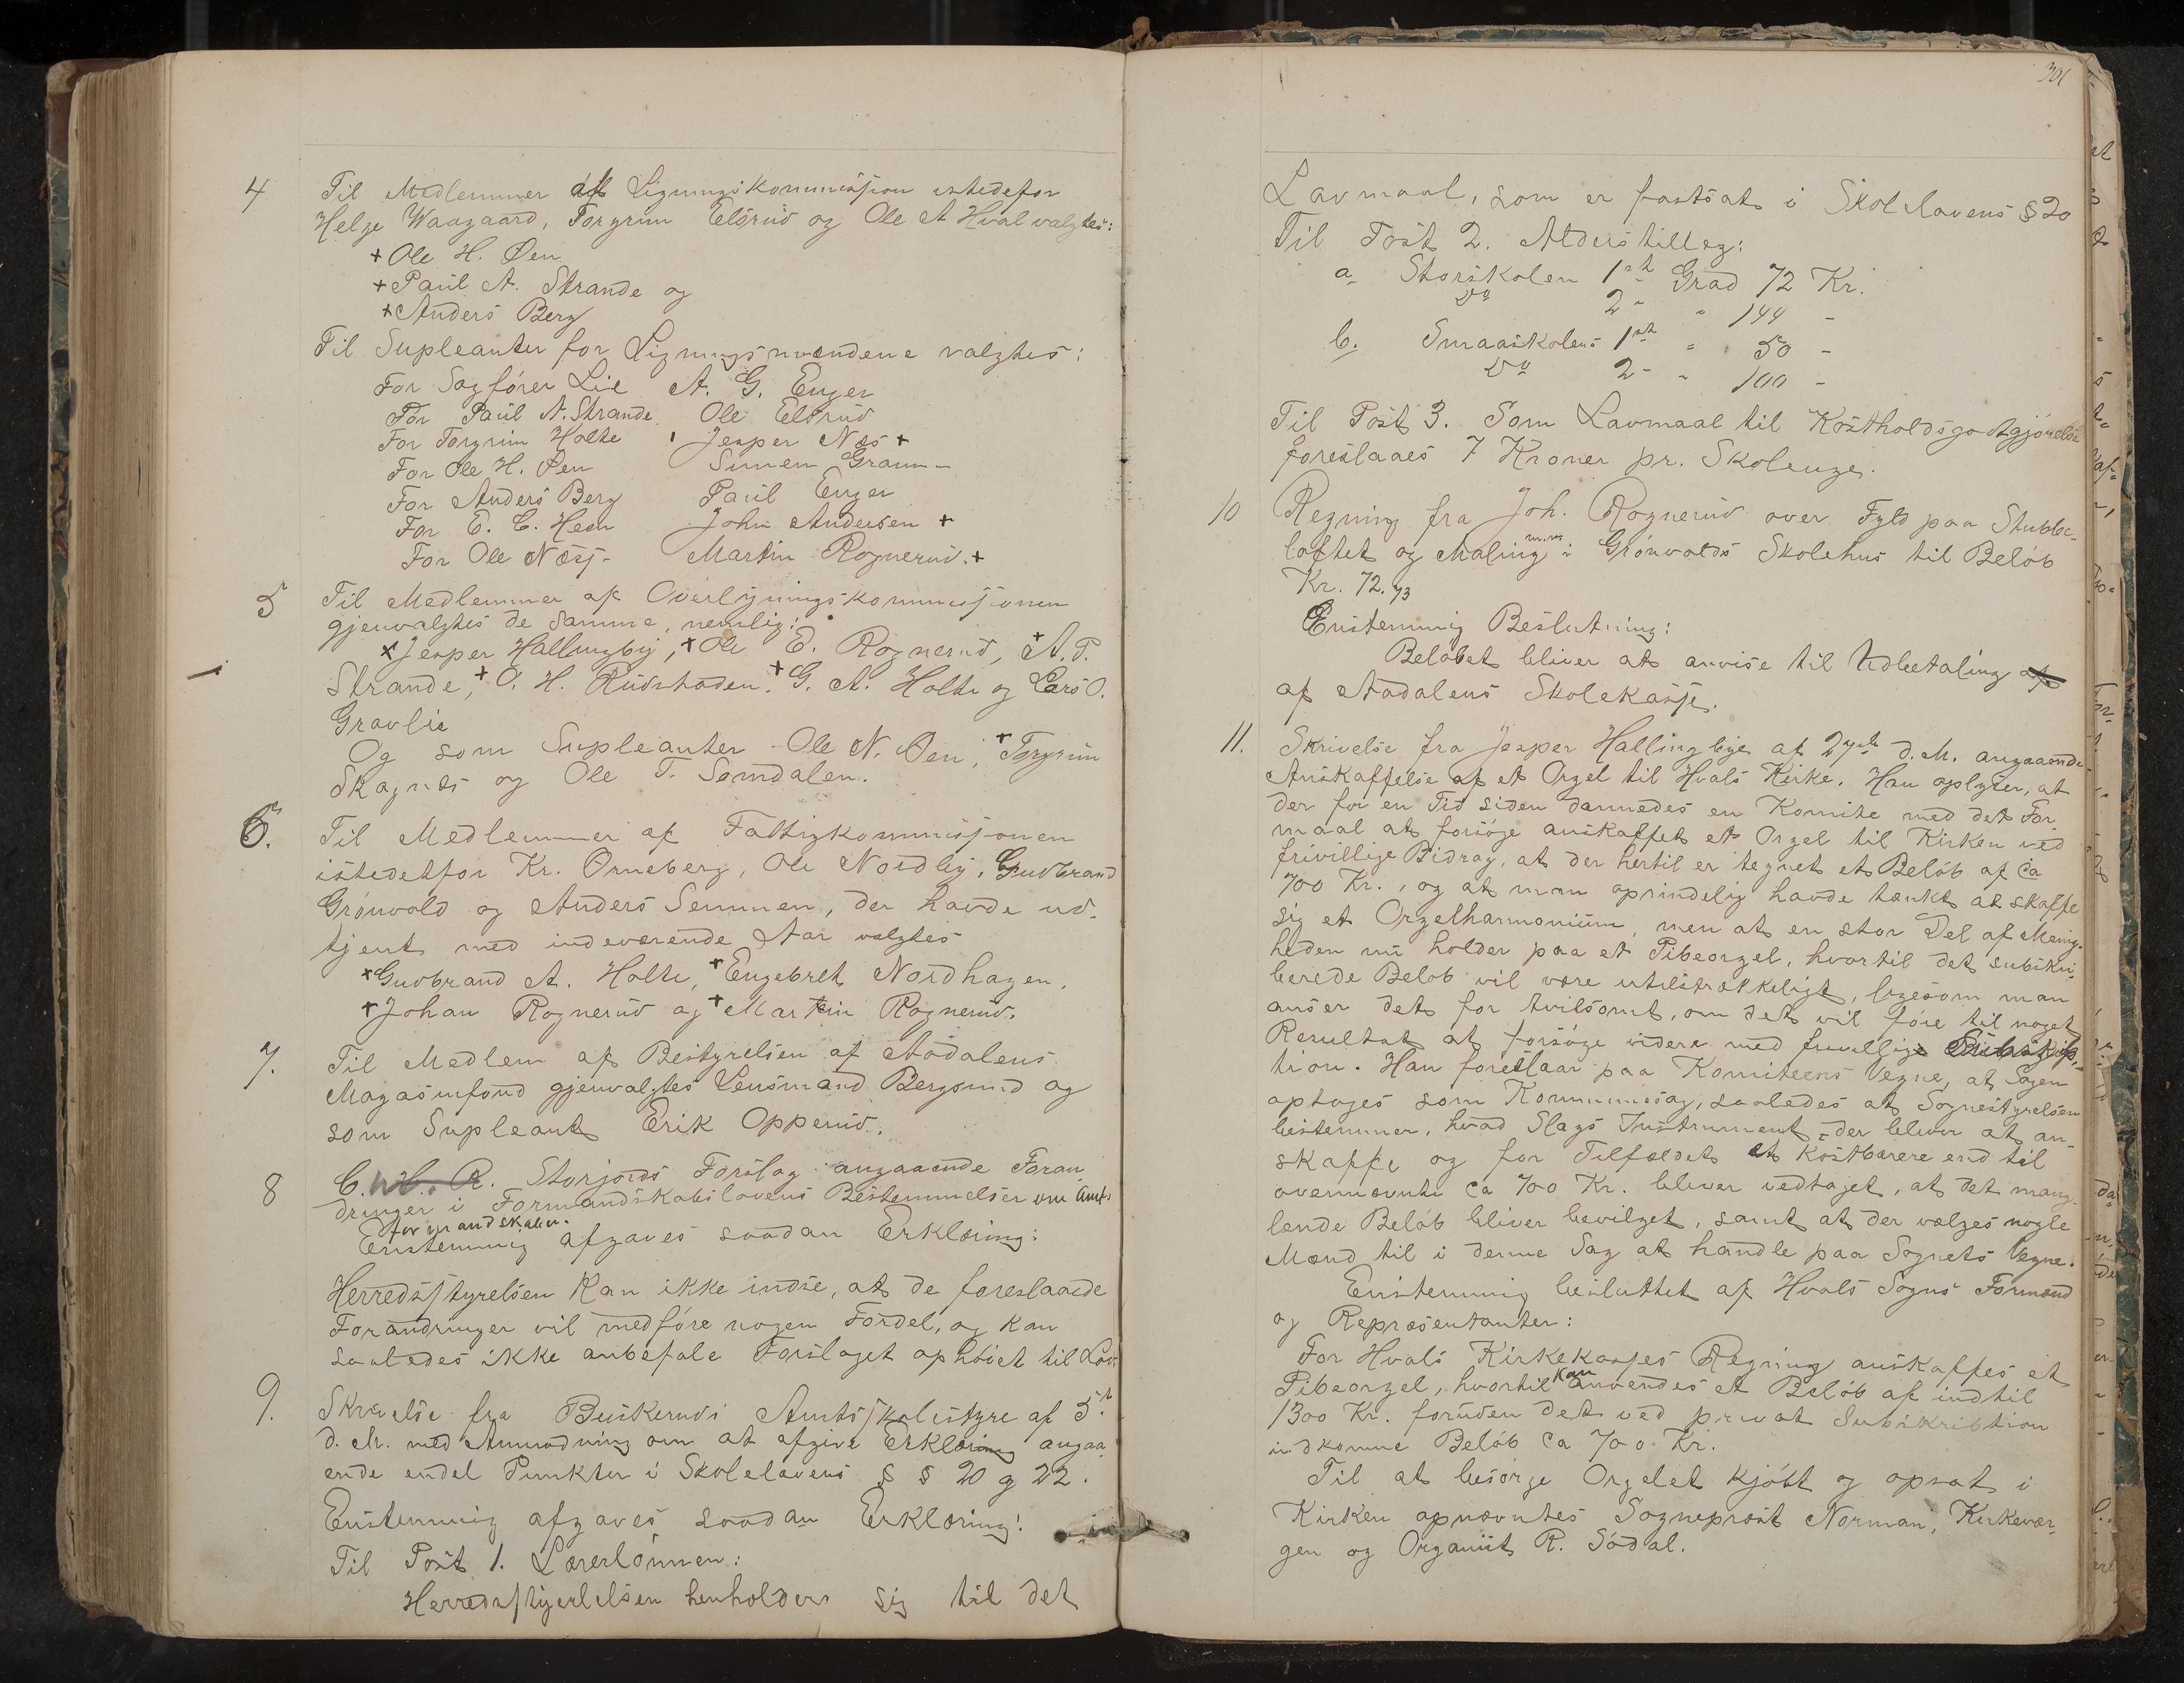 4 Til Medlemmer af Ligningskommissjon istedefor
Helge Waagaard, Torgrim Elsrud og Ole A Hval valgtes:
+ Ole H. Øen
+ Paul A. Strande og
+ Anders Berg
Til Supleanter for Ligningsmændene valgtes:
For Sagfører Lie A. G. Enger
For Paul A. Strande Ole Elsrud
For Torgrim Holte Jesper Næs +
For Ole H. Øen Simen Gram -
For Anders Berg Paul Enger
For E. C. Heen John Andersen +
For Ole Næsj - Martin Rognerud. +
5 Til Medlemmer af Overligningskommissjonen
gjenvalgtes de samme, nemlig:
+ Jesper Hallingby, + Ole E. Rognerud, + A. P.
Strande, + O. H. Rudshaden. + G. A. Holte og Lars O.
Gravlie
Og som Supleanter - Ole N. Øen, + Torgrim
Skagnæs og Ole T. Sørndalen.
6. Til Medlemmer af Fattigkommissjonen
istedetfor Kr. Ørneberg, Ole Nordby, Gudbrand
Grønvold og Anders Semmen, der havde ud-
tjent med indeværende Aar valgtes
+ Gudbrand A. Holte, + Engebret Nordhagen,
+ Johan Rognerud og + Martin Rognerud.
7. Til Medlem af Bestyrelsen af Aadalens
Magasinfond gjenvalgtes Lensmand Bergsund og
som Supleant Erik Opperud.
8 C. Storjords Forslag angaaende Foran-
dringer i Formandskabslovens Bestemmelser om Amts
formandskaber.
Enstemmig afgaves saadan Erklæring:
Herredsstyrelsen kan ikke indse, at de foreslaaede
Forandringer vil medføre nogen Fordel, og kan
saaledes ikke anbefale Forslaget ophøiet til Lov.
9. Skrivelse fra Buskeruds Amtsskolestyre af 5t
d. M. med Anmodning om at afgive Erklæring angaa-
ende endel Punkter i Skolelovens § § 20 og 22.
Enstemmig afgaves saadan Erklæring:
Til Post 1. Lærerlønnen:
Herredsstyerlelsen henholder sig til det
301
Lavmaal, som er fastsat i Skolelovens § 20
Til Post 2. Alderstillæg:
a Storskolen 1st Grad 72 Kr.
Do 2 - " 144 -
b. Smaaskolens 1st " 50 -
Do 2 - " 100 -
Til Post 3. Som Lavmaal til Kostholdsgodtgjørelse
foreslaaes 7 Kroner pr. Skoleuge.
10 Regning fra Joh. Rognerud over Fyld paa Stubbe-
loftet og Maling m.m i Grønvolds Skolehus til Beløb
Kr. 72.93
Enstemmig Beslutning:
Beløbet bliver at anvise til Udbetaling af
af Aadalens Skolekasse.
11. Skrivelse fra Jesper Hallingbye af 27de d. M. angaaende
Anskaffelse af et Orgel til Hvals Kirke. Han oplyser, at
der for en Tid siden dannedes en Komite med det For-
maal at forsøge anskaffet et Orgel til Kirken ved
frivillige Bidrag, at der hertil er tegnet et Beløb af ca
700 Kr., og at man oprindelig havde tænkt at skaffe
sig et Orgelharmonium, men at en stor Del af Menig-
heden nu holder paa et Pibeorgel, hvortil det subskri-
berede Beløb vil være utilstrækkeligt, ligesom man
anser det for tvilsomt, om det vil føre til noget
Resultat at forsøge videre med frivillige Subskrip-
tion. Han foreslaar paa Komiteens Vegne, at Sagen
optages som Kommunesag, saaledes at Sognestyrelsen
bestemmer, hvad Slags Instrument, der bliver at an-
skaffe og for Tilfældet et kostbarere end til
ovennævnte ca 700 Kr. bliver vedtaget, at det mang-
lende Beløb bliver bevilget, samt at der vælges nogle
Mænd til i denne Sag at handle paa Sognets Vegne.
Enstemmig besluttet af Hvals Sogns Formænd
og Repræsentanter:
For Hvals Kirkekasses Regning anskaffes et
Pibeorgel, hvortil kan anvendes et Beløb af indtil
1300 Kr. foruden det ved privat Subskribtion
indkomne Beløb ca 700 Kr.
Til at besørge Orgelet kjøbt og opsat i
Kirken opnævntes Sogneprest Norman, Kirkevær-
gen og Organist R. Sødal.